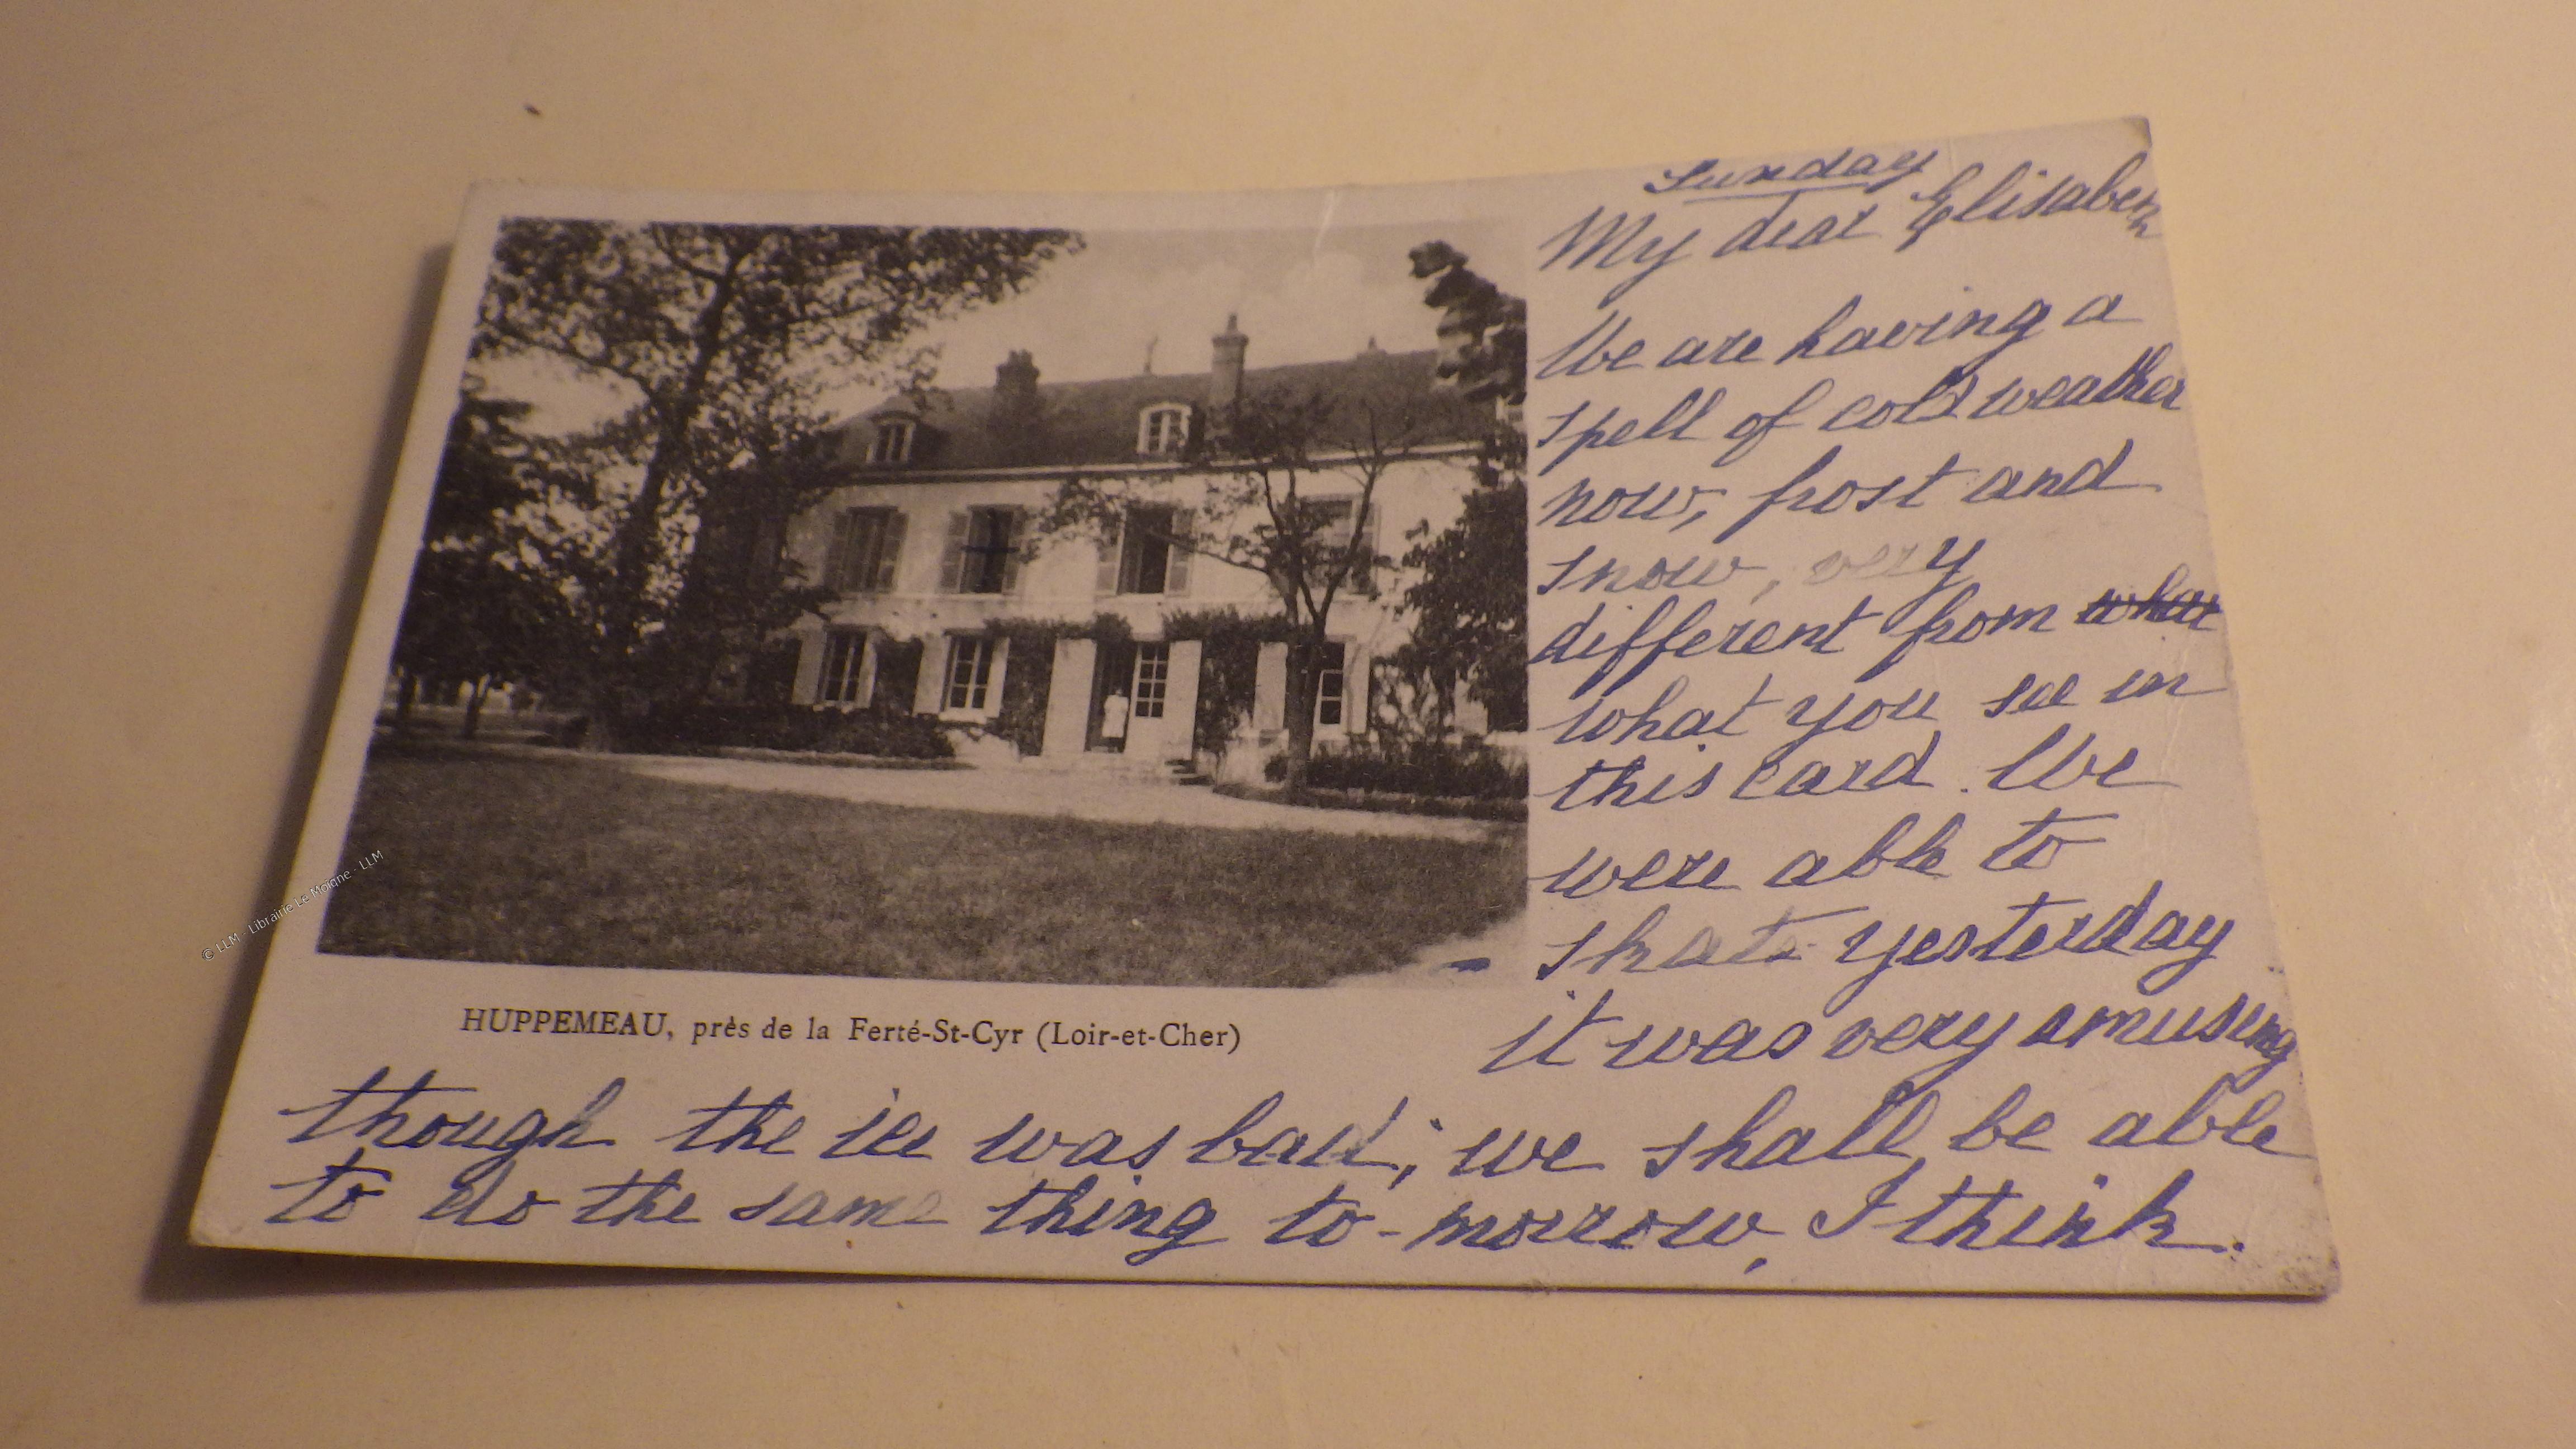 Sunday
My dear Elisabeth
We are having a
spell of cold weather
now, frost and
snow, very
different from what
what you see in
this card. We
were able to
skate yesterday
it was very amusing
though the ice was bad; we shall be able
to do the same thing to-morrow, I think.
HUPPEMEAU, près de la Ferté-St-Cyr (Loir-et-Cher)
© LLM - Librairie Le Moigne - LLM